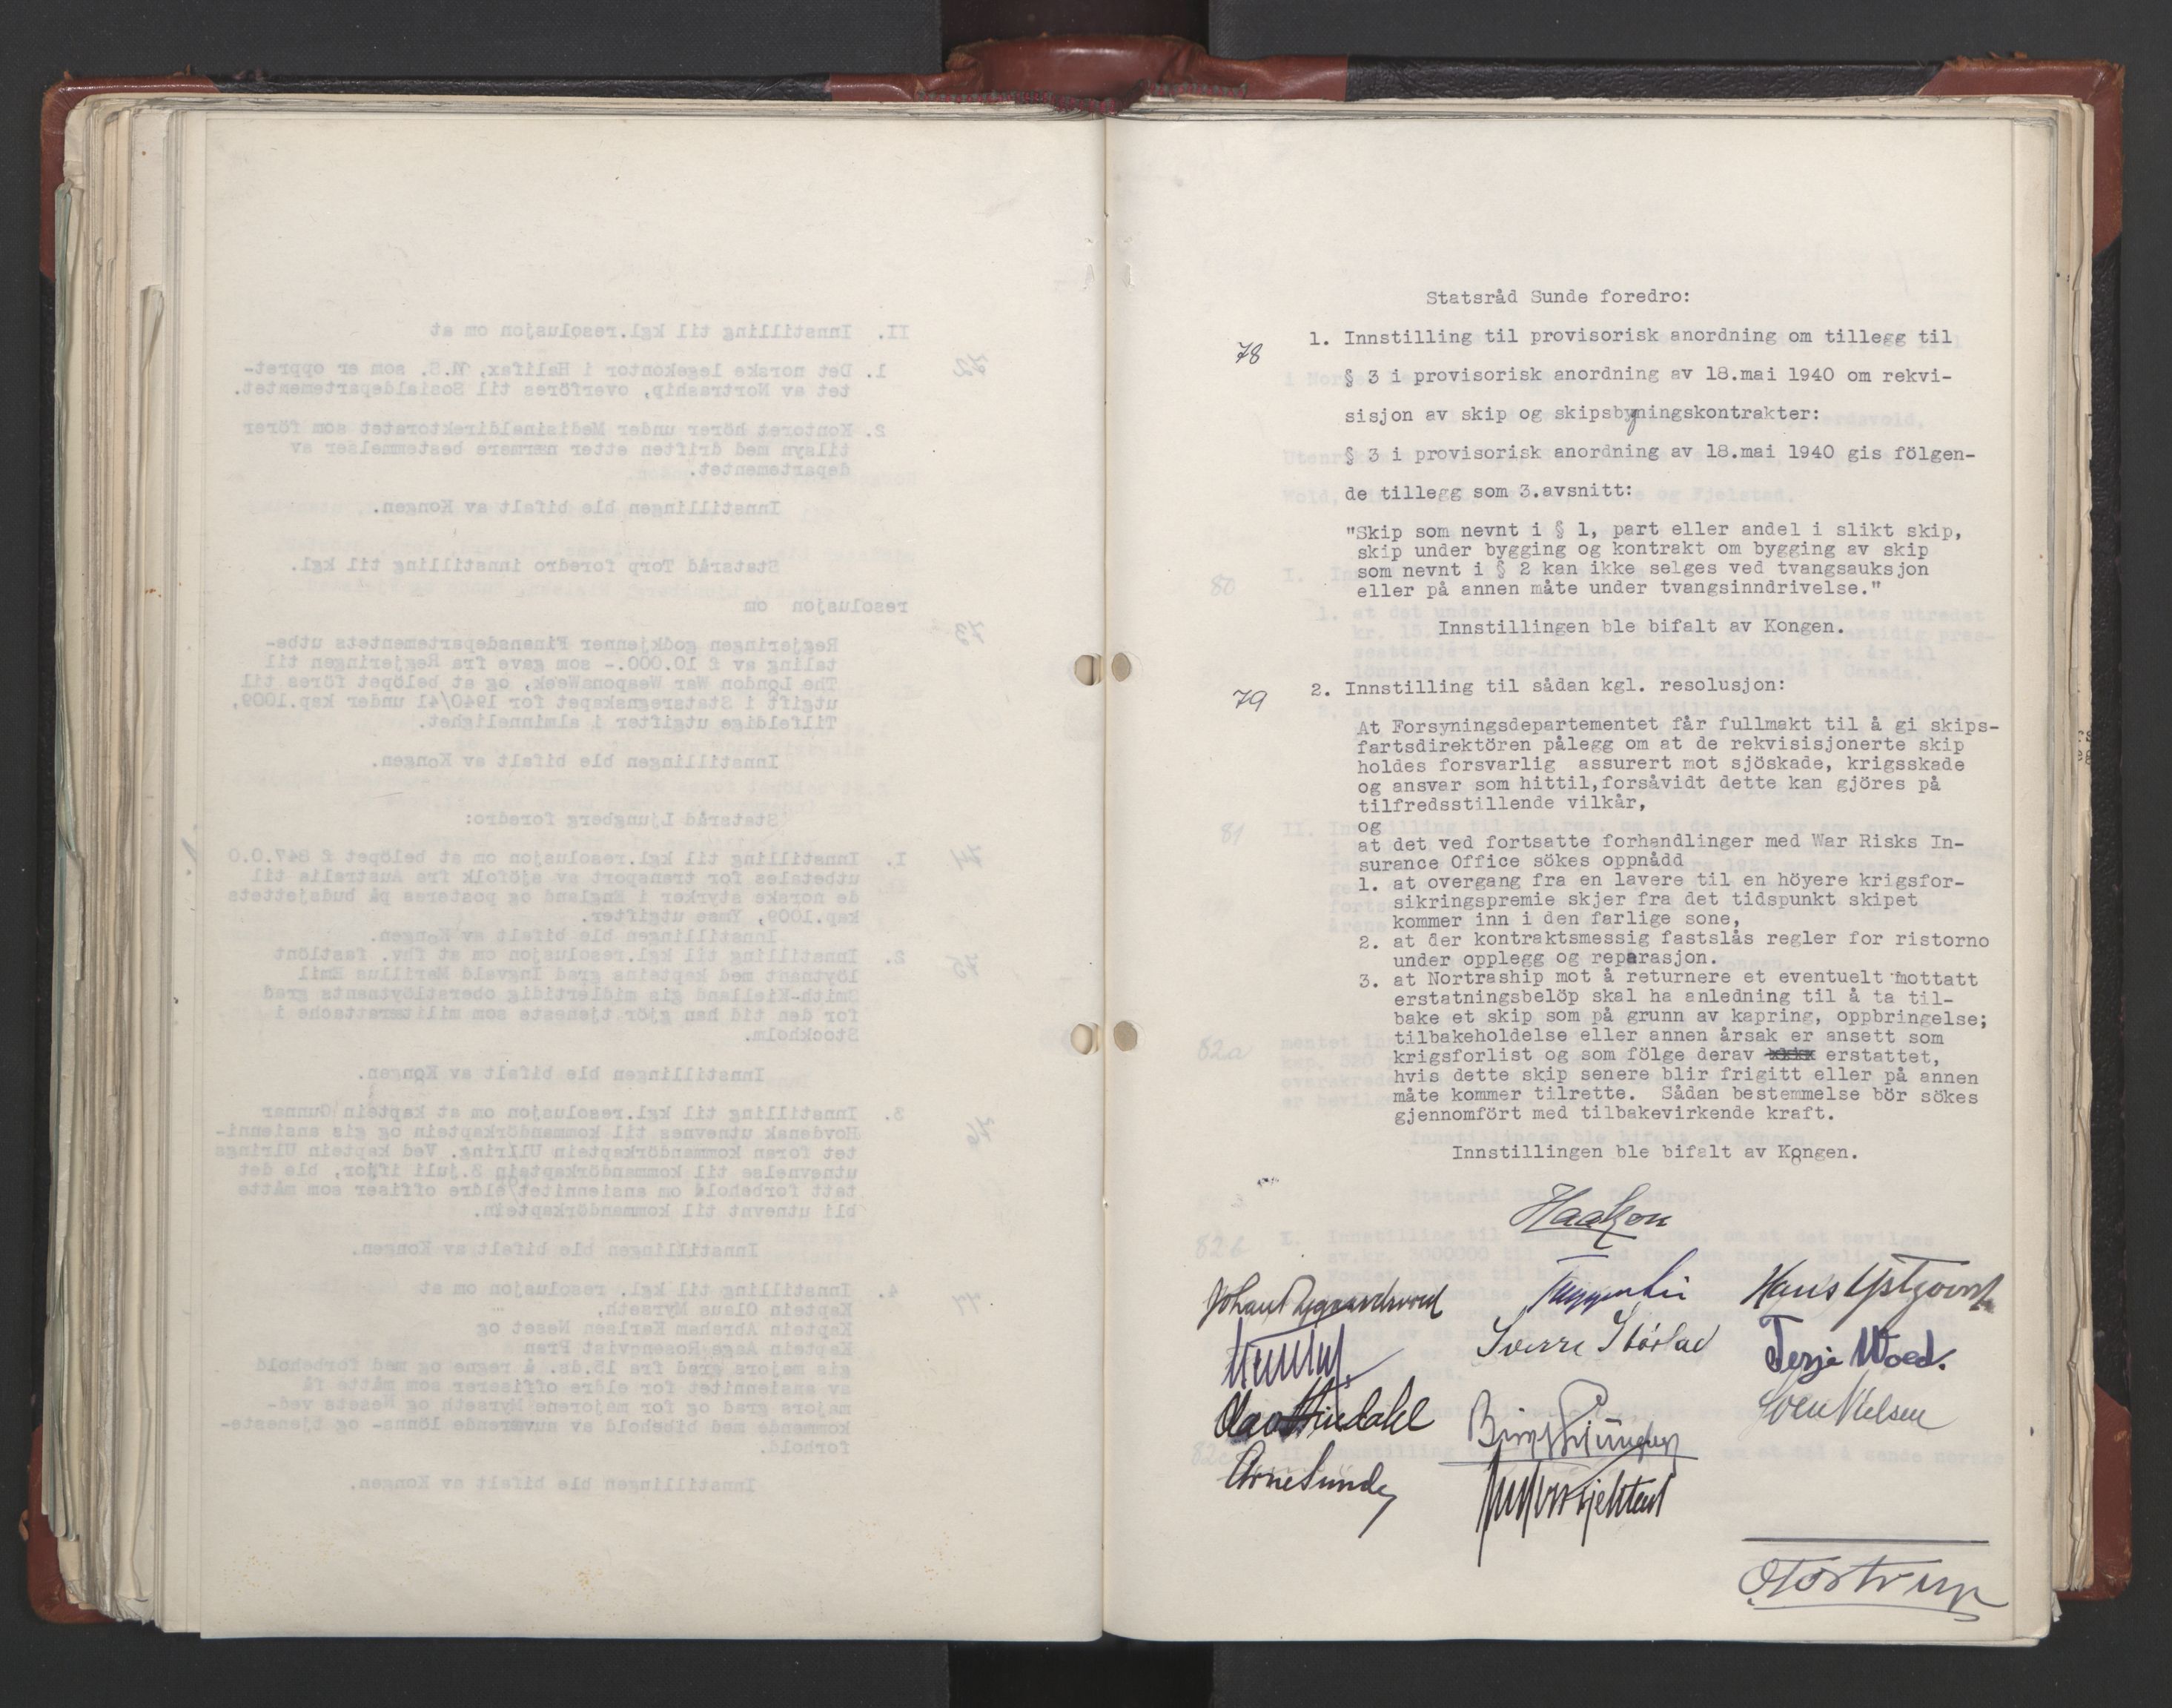 Statsråd Sunde foredro:
78
1. Innstilling til provisorisk anordning om tillegg til
§ 3 i provisorisk anordning av 18.mai 1940 om rekvi-
sisjon av skip og skipsbyningskontrakter:
§ 3 i provisorisk anordning av 18.mai 1940 gis fölgen-
de tillegg som 3.avsnitt:
"Skip som nevnt i § 1, part eller andel i slikt skip,
skip under bygging og kontrakt om bygging av skip
som nevnt i § 2 kan ikke selges ved tvangsauksjon
eller på annen måte under tvangsinndrivelse."
Innstillingen ble bifalt av Kongen.
79
2. Innstilling til sådan kgl. resolusjon:
At Forsyningsdepartementet får fullmakt til å gi skips-
fartsdirektören pålegg om at de rekvisisjonerte skip
holdes forsvarlig assurert mot sjöskade, krigsskade
og ansvar som hittil,forsåvidt dette kan gjöres på
tilfredsstillende vilkår,
og
at det ved fortsatte forhandlinger med War Risks In-
surance Office sökes oppnådd
1. at overgang fra en lavere til en höyere krigsfor-
sikringspremie skjer fra det tidspunkt skipet
kommer inn i den farlige sone,
2. at der kontraktsmessig fastslås regler for ristorno
under opplegg og reparasjon.
3. at Nortraship mot å returnere et eventuelt mottatt
erstatningsbelöp skal ha anledning til å ta til-
bake et skip som på grunn av kapring, oppbringelse;
tilbakeholdelse eller annen årsak er ansett som
krigsforlist og som fölge derav erstattet,
hvis dette skip senere blir frigitt eller på annen
måte kommer tilrette. Sådan bestemmelse bör sökes
gjennomfört med tilbakevirkende kraft.
Innstillingen ble bifalt av Kongen.
Haakon
Johan Nygaardsvold Trygve Lie Hans Ystgaard
Sverre Støstad Terje Wold.
Olav Hindahl Birger Ljungberg Sven Nielsen
Arne Sunde Anders Fjelstad
O Tostrup